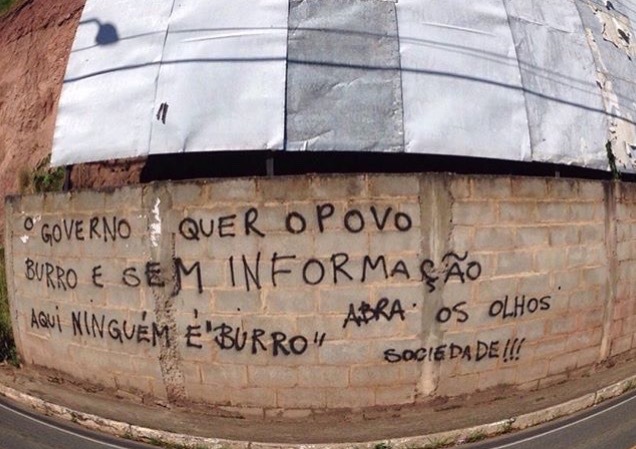 O GOVERNO QUER O POVO
BURRO E SEM INFORMAÇÃO
AQUI NINGUÉM É "BURRO" ABRA OS OLHOS
SOCIEDADE!!!